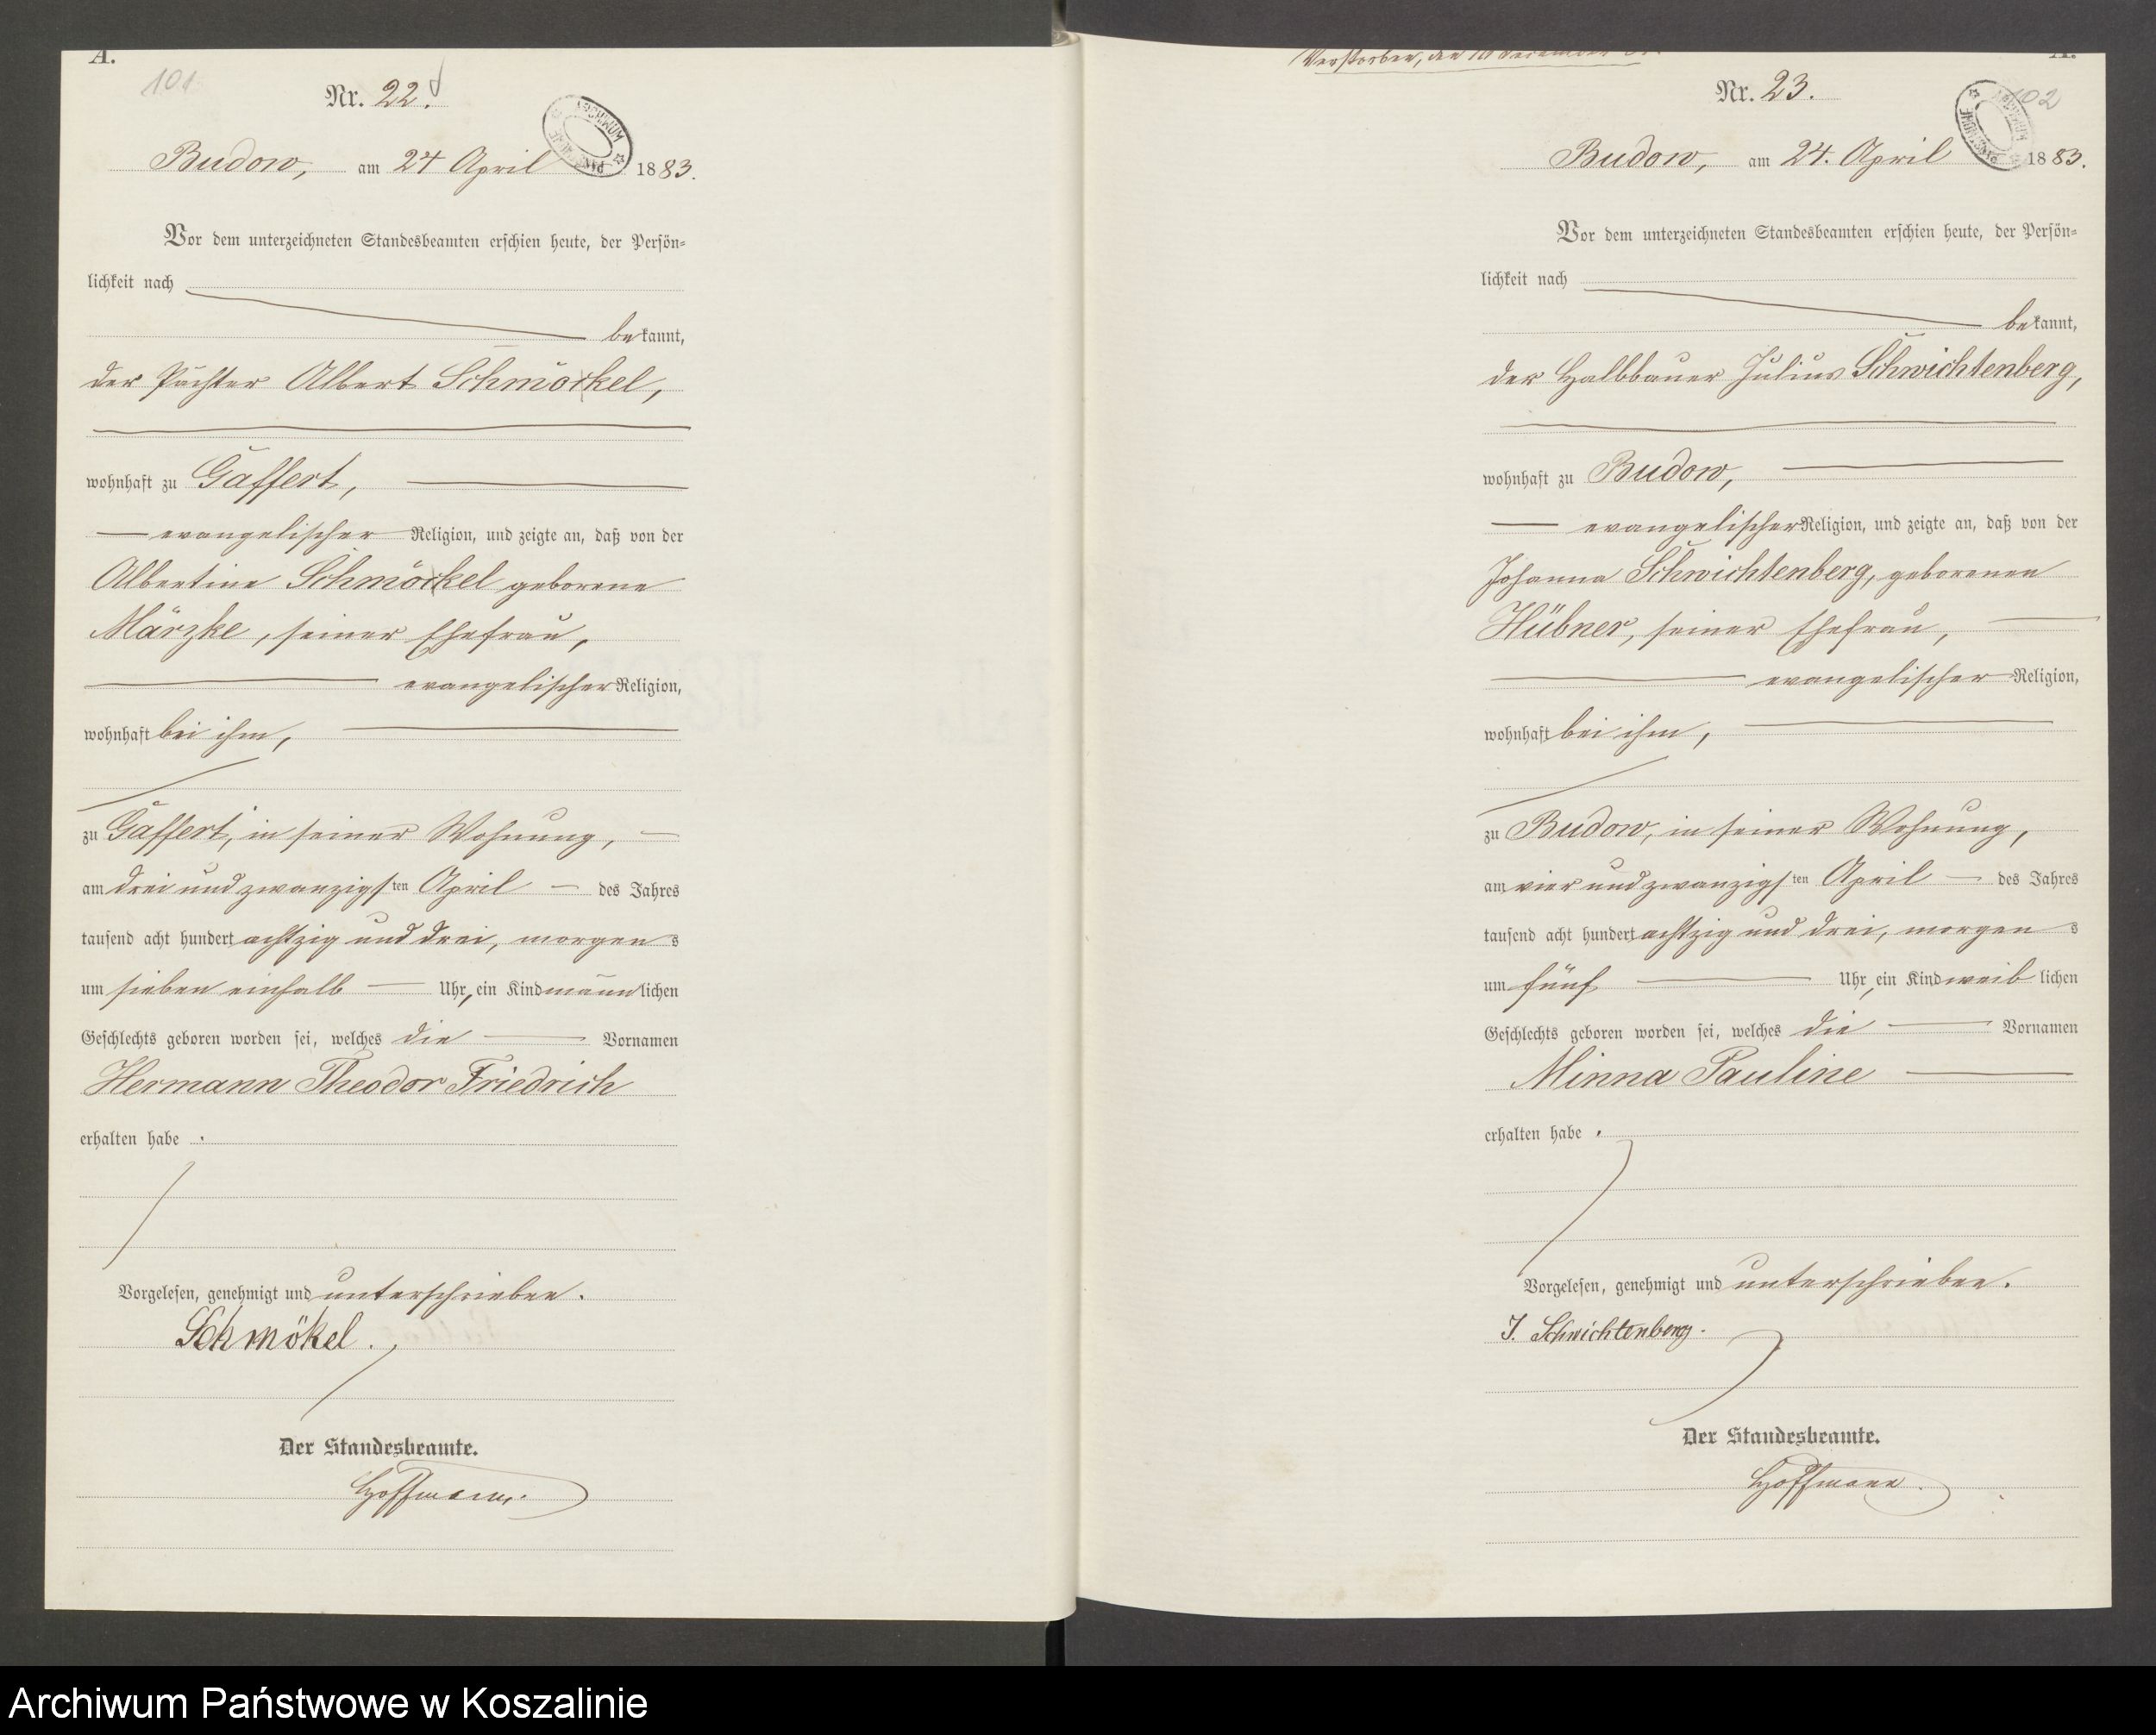 A.
101
Nr. 22.
ARCHIWUM PAŃSTWOWE
Budow, am 24 April 1883.
Vor dem unterzeichneten Standesbeamten erschien heute, der Persön-
lichkeit nach
bekannt,
der Pächter Albert Schmöckel,
wohnhaft zu Gaffert,
evangelischer Religion, und zeigte an, daß von der
Albertine Schmöckel geborene
Märzke, seiner Ehefrau,
evangelischer Religion,
wohnhaft bei ihm,
zu Gaffert, in seiner Wohnung,
am drei und zwanzigsten April des Jahres
tausend acht hundert achtzig und drei, morgens
um sieben einhalb Uhr, ein Kind männlichen
Geschlechts geboren worden sei, welches die Vornamen
Hermann Theodor Friedrich
erhalten habe.
Vorgelesen, genehmigt und unterschrieben.
Schmökel.
Der Standesbeamte.
Hoffmann.
Verstorben, den
A.
Nr. 23.
102
ARCHIWUM PAŃSTWOWE
Budow, am 24. April 1883.
Vor dem unterzeichneten Standesbeamten erschien heute, der Persön-
lichkeit nach
bekannt,
der Halbbauer Julius Schwichtenberg,
wohnhaft zu Budow,
evangelischer Religion, und zeigte an, daß von der
Johanna Schwichtenberg, geborenen
Hübner, seiner Ehefrau,
evangelischer Religion,
wohnhaft bei ihm,
zu Budow, in seiner Wohnung,
am vier und zwanzigsten April des Jahres
tausend acht hundert achtzig und drei, morgens
um fünf Uhr, ein Kind weiblichen
Geschlechts geboren worden sei, welches die Vornamen
Minna Pauline
erhalten habe.
Vorgelesen, genehmigt und unterschrieben.
J. Schwichtenberg.
Der Standesbeamte.
Hoffmann.
Archiwum Państwowe w Koszalinie